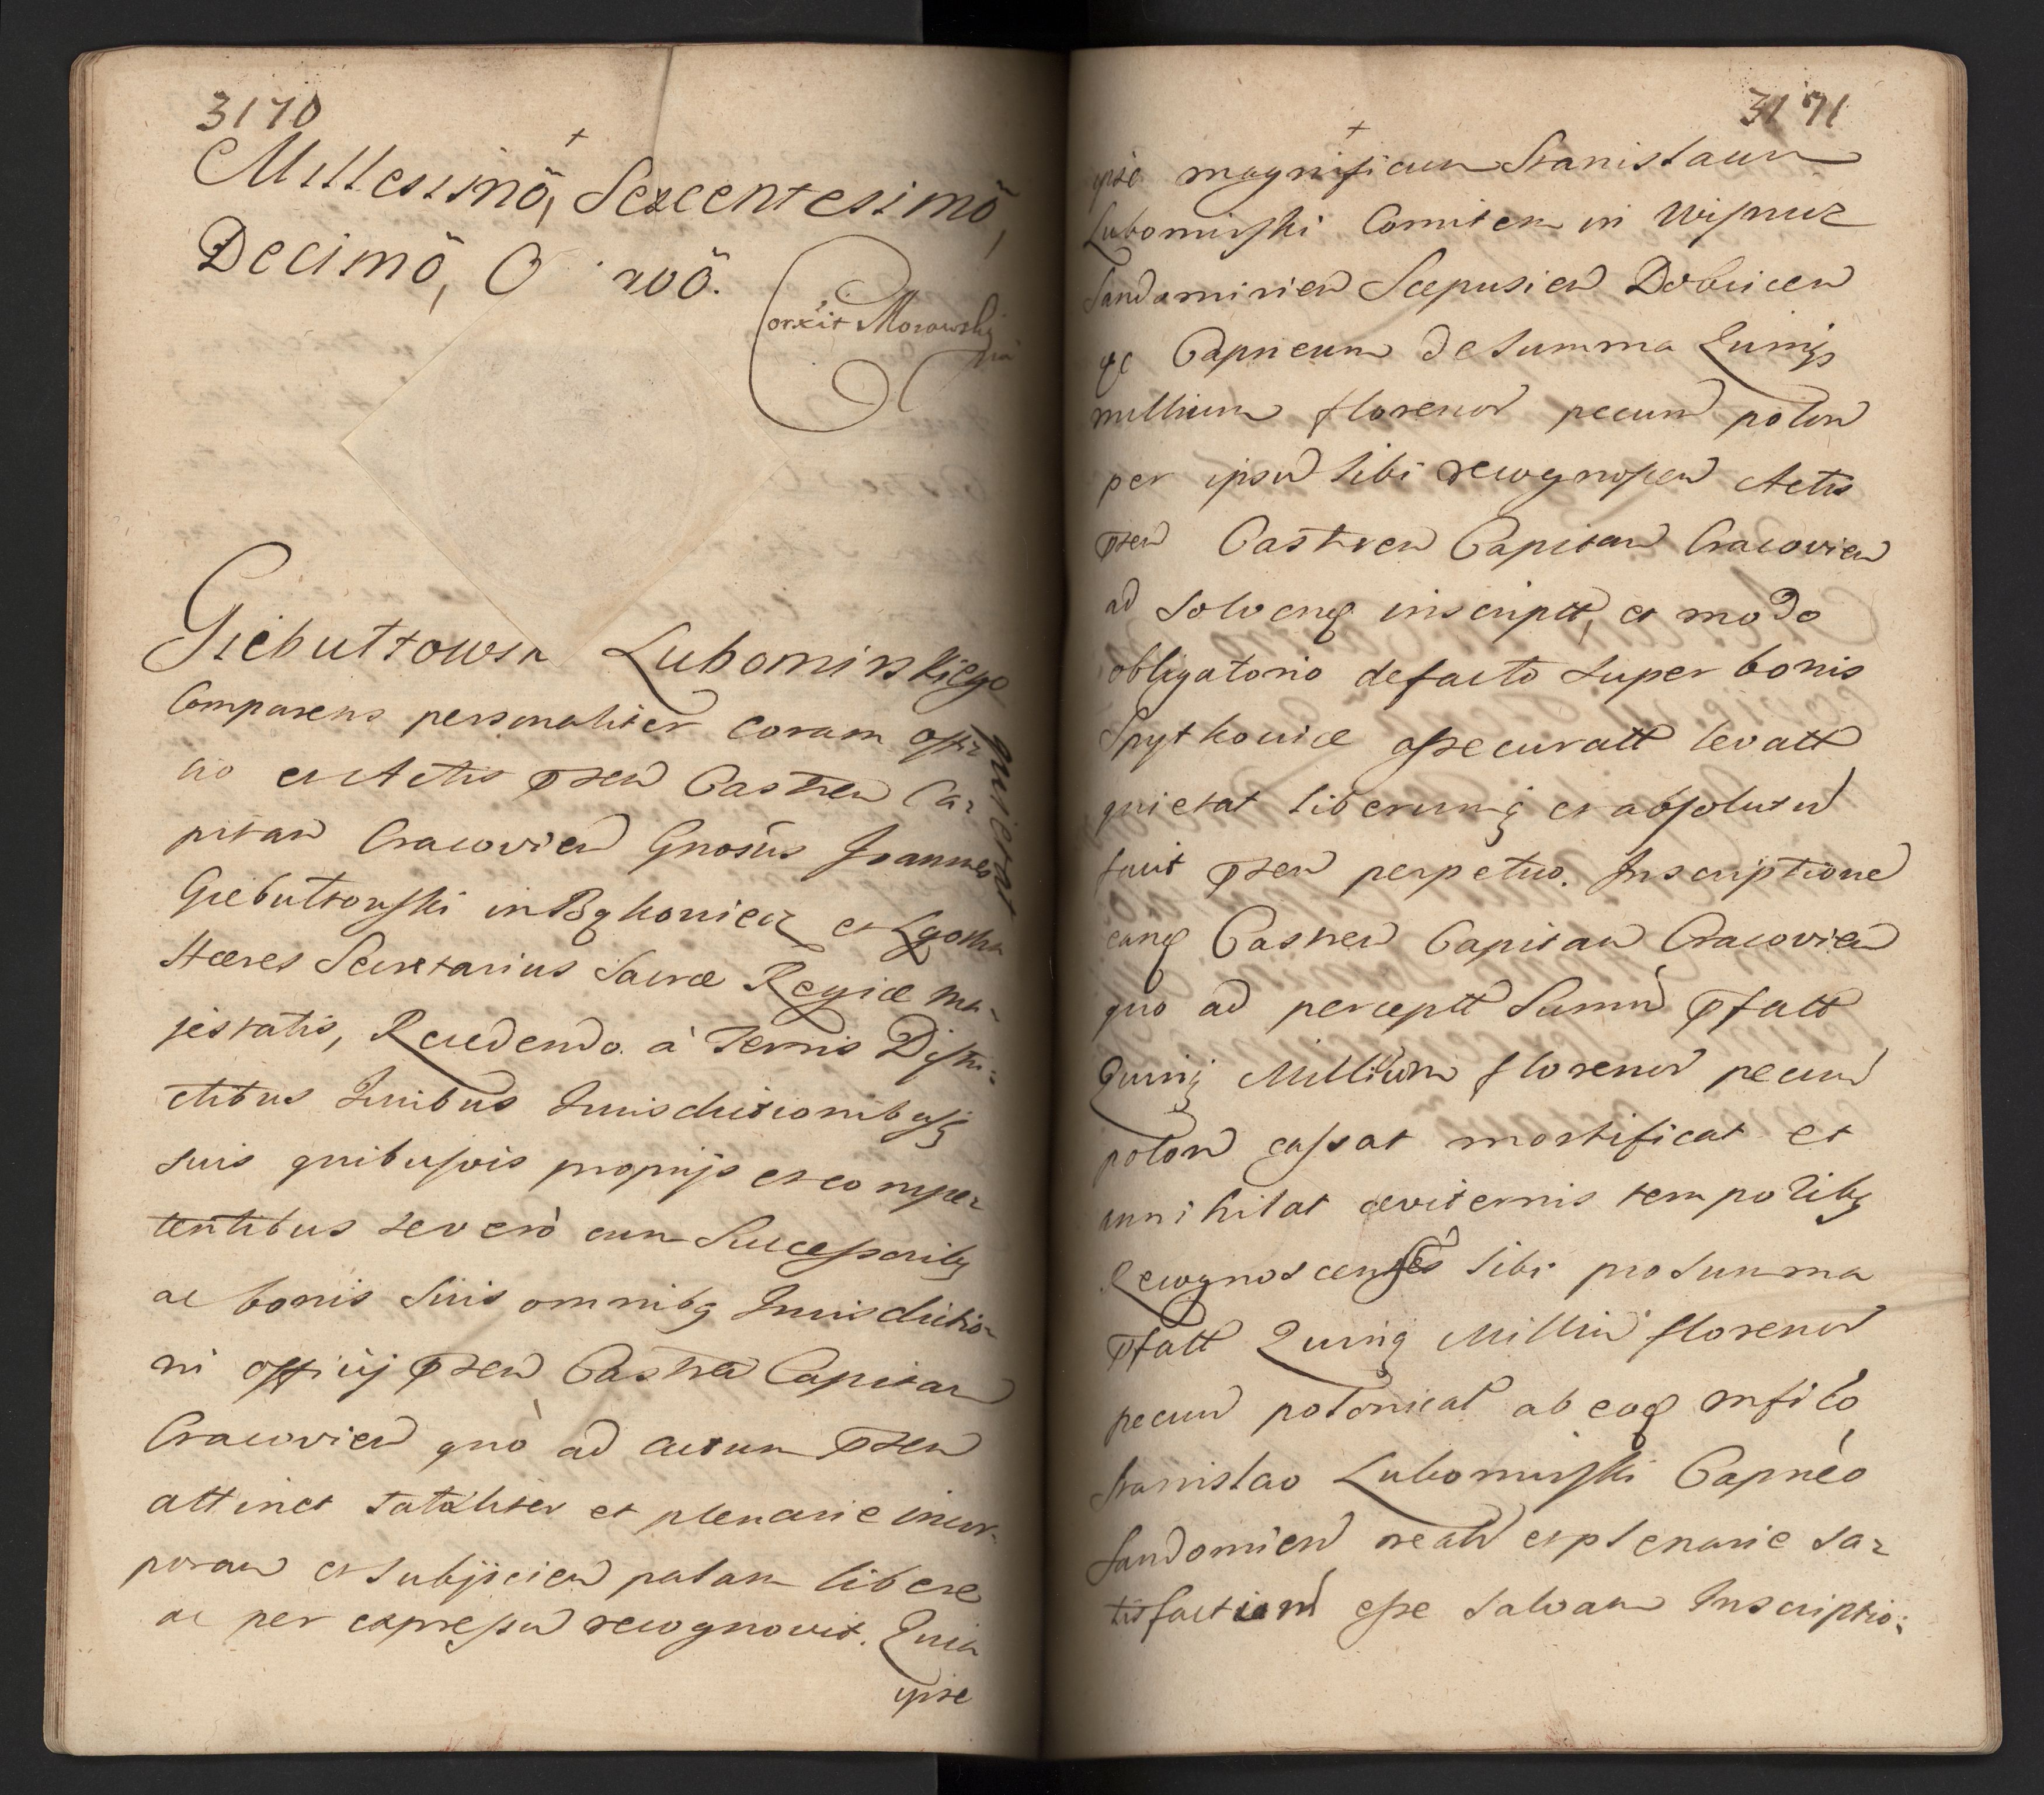 3170
Millesimõ, Sexcentesimõ,
Decimõ, O
Corxit Morawski
Giebułtowski Lubomirskiego
quietat
Comparens personaliter coram offi-
cio et Actis pñten Castren Ca-
pitan Cracovien Gnosus Joannes
Giebułtowski in Bąkowiec et Lgotha
Hæres Secretarius Sacræ Regiæ Ma-
jestatis, Recedendo à Terris Distri-
ctibus Juribus Jurisdictionibusq
suis quibusvis proprijs et compe-
tentibus se vero cum Successoribq
ac bonis suis omnibq Jurisdictio-
ni officij pñten Castren Capitan
Cracovien quò ad actum pñten
attinet totaliter et plenarie incor-
poran et subijcien palam libere
ac per expressũ recognovit. Quia
ipse
3171
ipse magnificum Stanislaum
Lubomirski Comitem in Wisnicz
Sandomirien Scepusien Dobcicen
qc Capneum de summa Quinqs
millium florenor pecun polon
per ipsũ sibi recognoscen Actis
pñten Castren Capitan Cracovien
ad solvenq inscriptt, et modo
obligatorio de facto super bonis
Spytkovice assecuratt levatt
quietat liberumq et absolutũ
facit pñten perpetuo. Inscriptione
eanq Castren Capitan Cracovien
quo ad perceptt Summ pfatt
Quinq Millium florenor pecun
polon cassat mortificat et
annihilat æviternis temporibq
Recognoscens sibi pro summa
pfatt Quinq Milliũ florenor
pecun polonical ab eoq mfico
Stanislao Lubomirski Capneo
Sandomien realr et plenarie sa-
tisfactum esse salvam Inscriptio-